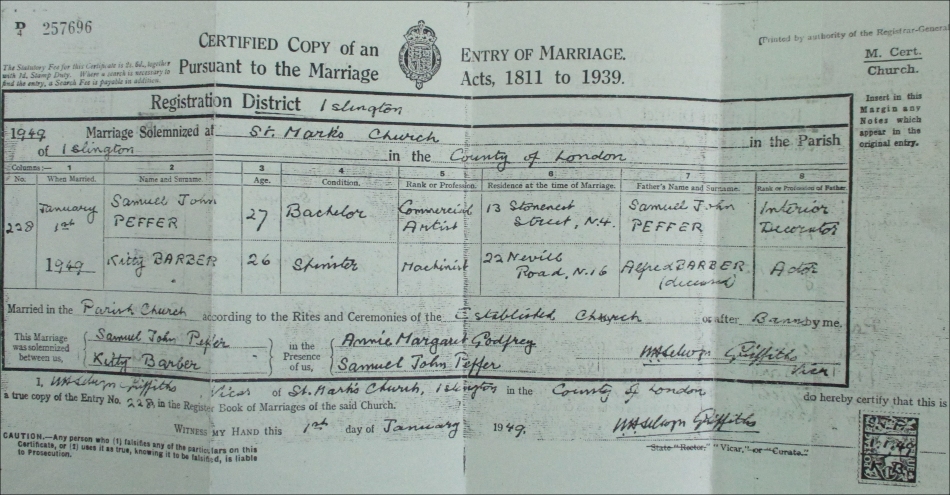 D/4 257696
CERTIFIED COPY of an ENTRY OF MARRIAGE.
Pursuant to the Marriage Acts, 1811 to 1939.
(Printed by authority of the Registrar-General
The Statutory Fee for this Certificate is 2s. 6d., together
with 2d. Stamp Duty. Where a search is necessary to
find the entry, a Search Fee is payable in addition.
M. Cert.
Church.
Insert in this
Margin any
Notes which
appear in the
original entry.
Registration District Islington
1949 Marriage Solemnized at St. Mark's Church in the Parish
of Islington in the County of London
Columns:— 1 2 3 4 5 6 7 8
No. When Married. Name and Surname. Age. Condition. Rank or Profession. Residence at the time of Marriage. Father's Name and Surname. Rank or Profession of Father
228 January 1st 1949
Samuel John PEFFER 27 Bachelor Commercial Artist 13 Stonenest Street, N.4. Samuel John PEFFER Interior Decorator
Kitty BARBER 26 Spinster Machinist 22 Nevill Road, N.16 Alfred BARBER (deceased) Actor
Married in the Parish Church according to the Rites and Ceremonies of the Established Church or after Banns by me.
This Marriage
was solemnized
between us,
Samuel John Peffer
Kitty Barber
in the
Presence
of us,
Annie Margaret Godfrey
Samuel John Peffer
WASelwyn Griffiths
Vicar
I, WASelwyn Griffiths, Vicar of St. Mark's Church, Islington in the County of London do hereby certify that this is
a true copy of the Entry No. 228, in the Register Book of Marriages of the said Church.
WITNESS MY HAND this 1st day of January 1949.
WASelwyn Griffiths
State "Rector," "Vicar," or "Curate."
CAUTION.—Any person who (1) falsifies any of the particulars on this
Certificate, or (2) uses it as true, knowing it to be falsified, is liable
to Prosecution.
1.1.49